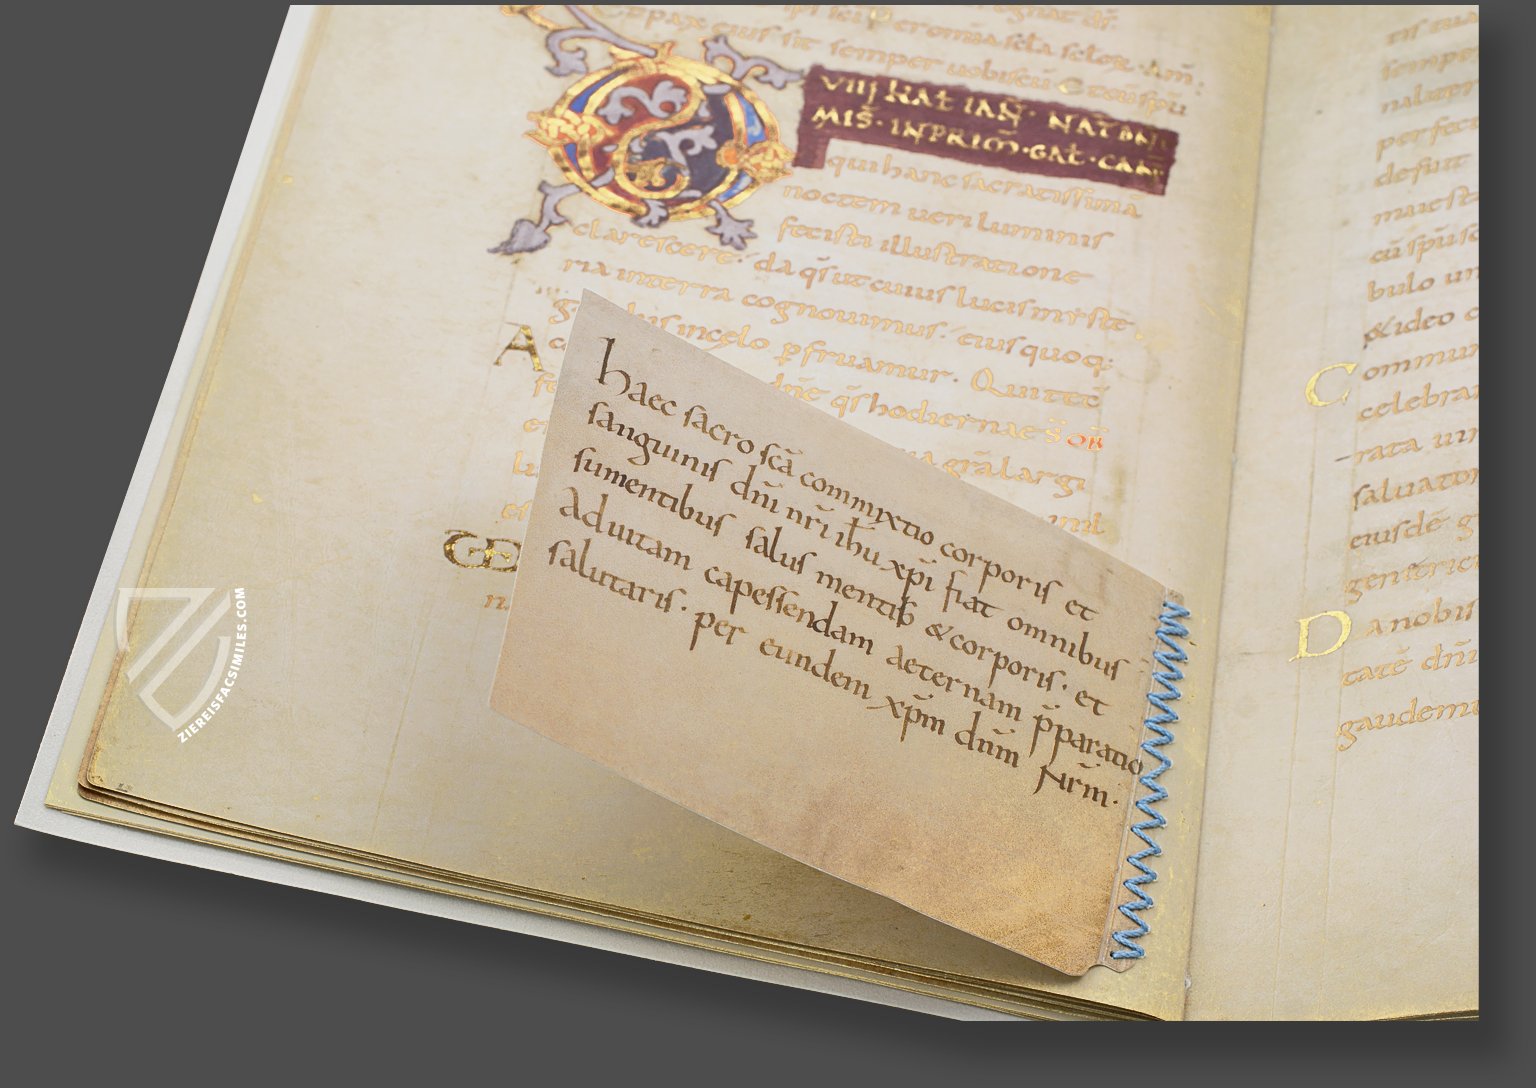 & pax eius sit semper uobiscū & cū spū
VIIJ KAL IAN̄ · NAT DNI
MIS̄ · IN PRIM̄ · GAL̄ · CAN̄
qui hanc sacratissimā
noctem ueri luminis
fecisti illustratione
clarescere · da q̄s ut cuius lucis myste
ria in terra cognouimus · eius quoq;
in celo pfruamur · Qui tecū
A
dn̄e q̄s hodiernae S̄ OB̄
grā largi
haec sacro scā commixtio corporis et
sanguinis dn̄i nr̄i ihu xpi fiat omnibus
sumentibus salus mentis & corporis · et
Ad uitam capessendam aeternam p̄paratio
salutaris · per eundem xp̄m dn̄m Nr̄m ·
perfect
defuit
bulo un
& ideo c
C ommun
celebra
rata uir
saluator
eiusdē g
genitrici
D A nobis
tatē dn̄i
gaudemu
ZIEREISFACSIMILES.COM